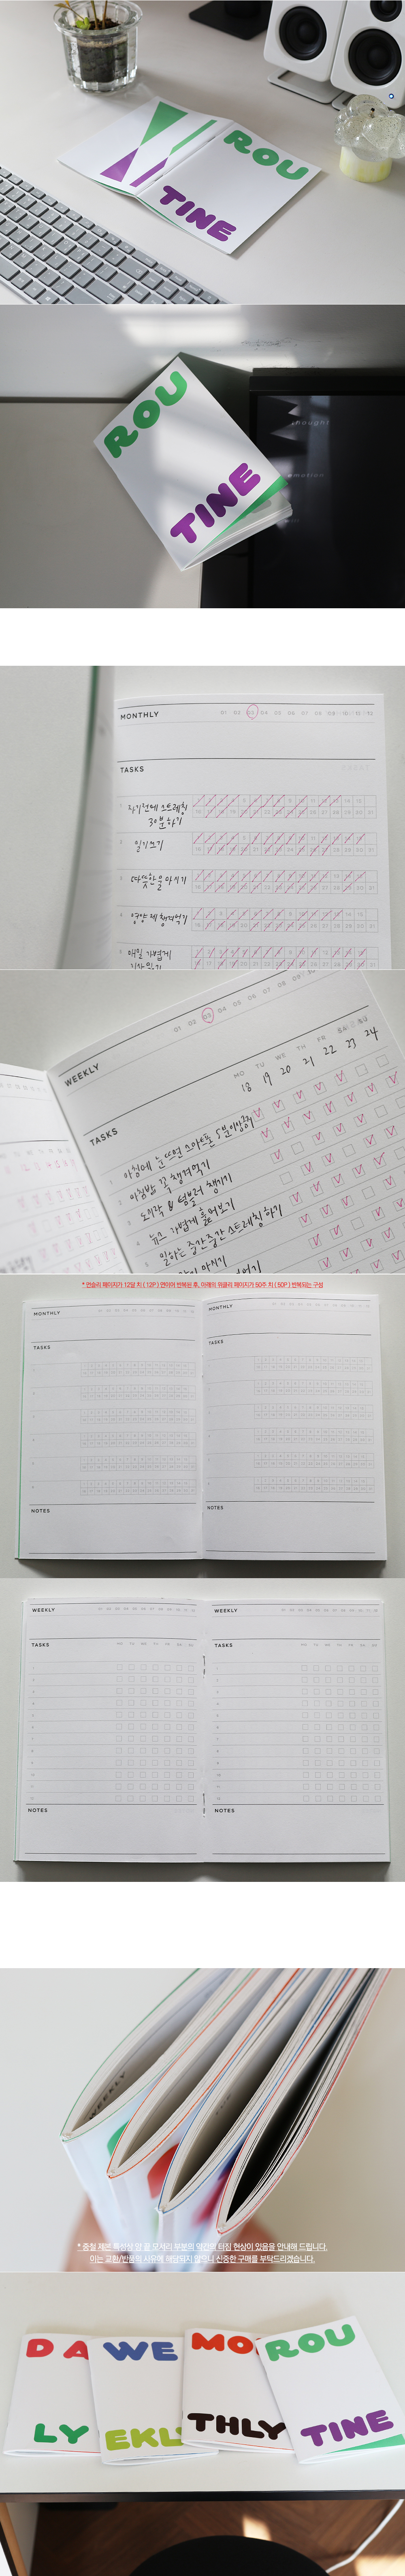 ROU
TINE
ROU
TINE
thought
emotion
MONTHLY
01 02 03 04 05 06 07 08 09 10 11 12
TASKS
1 자기전에 스트레칭
30분하기
2 일기쓰기
3 따뜻한 물 마시기
4 영양제 챙겨먹기
5 매일 가볍게
기사읽기
WEEKLY
01 02 03 04 05 06 07 08 09
TASKS
MO TU WE TH FR SA SU
18 19 20 21 22 23 24
1 아침에 눈 뜨면 스마트폰 5분이상금지
2 아침밥 꼭 챙겨먹기
3 도시락 & 텀블러 챙기기
4 뉴스 가볍게 훑어보기
5 일하는 중간중간 스트레칭하기
* 먼슬리 페이지가 12달 치 ( 12P ) 연이어 반복된 후, 아래의 위클리 페이지가 50주 치 ( 50P ) 반복되는 구성
MONTHLY
TASKS
NOTES
MONTHLY
TASKS
NOTES
WEEKLY
TASKS
MO TU WE TH FR SA SU
NOTES
WEEKLY
TASKS
MO TU WE TH FR SA SU
NOTES
WEEKLY
* 중철 제본 특성상 양 끝 모서리 부분의 약간의 터짐 현상이 있음을 안내해 드립니다.
이는 교환/반품의 사유에 해당되지 않으니 신중한 구매를 부탁드리겠습니다.
DA
LY
WE
EKL
MO
THLY
ROU
TINE